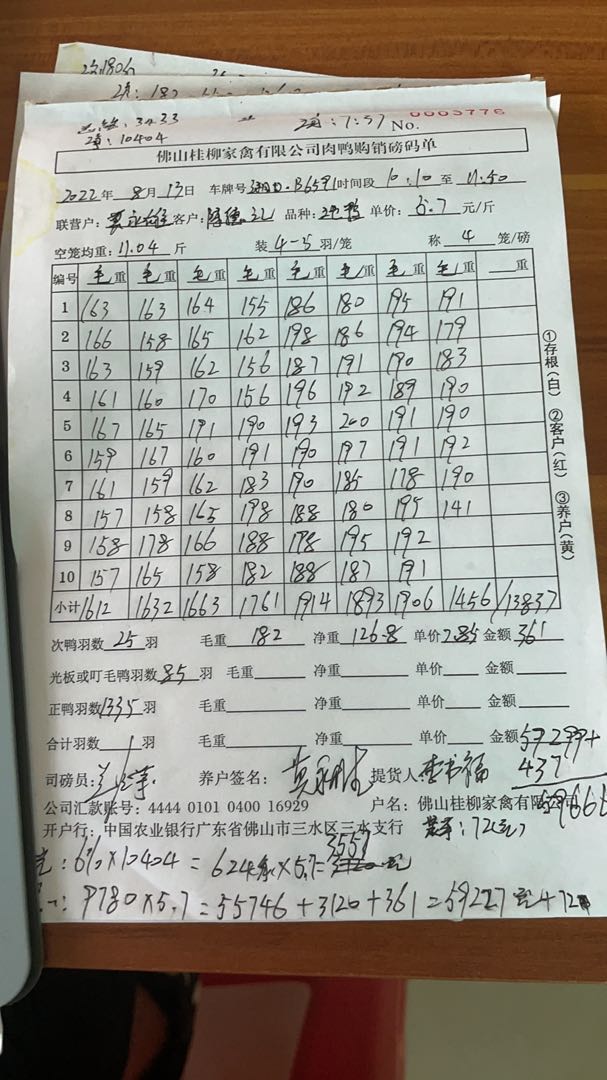 :3433
:10404
:7:57 No.
0003776
佛山桂柳家禽有限公司肉鸭购销磅码单
2022年 8月 13日 车牌号 B6591 时间段 10.10 至 11.50
联营户: 客户: 品种: 单价: 5.7 元/斤
空笼均重: 11.04 斤 装 4-5 羽/笼 称 4 笼/磅
编号 毛重 毛重 毛重 毛重 毛重 毛重 毛重 毛重 重
1 163 163 164 155 186 180 195 191
2 166 158 165 162 198 186 194 179
3 163 159 162 156 187 191 190 183
4 161 160 170 156 196 192 189 190
5 167 165 191 190 193 200 191 190
6 159 167 160 191 190 197 191 192
7 161 159 162 183 190 185 178 190
8 157 158 165 198 188 180 195 141
9 158 178 166 188 198 195 192
10 157 165 158 182 188 187 191
小计 1612 1632 1663 1761 1914 1893 1906 1456 /13837
①存根(白) ②客户(红) ③养户(黄)
次鸭羽数 25 羽 毛重 182 净重 126.8 单价 2.85 金额 361
光板或叮毛鸭羽数 85 羽 毛重 净重 单价 金额
正鸭羽数 1335 羽 毛重 净重 单价 金额
合计羽数 羽 毛重 净重 单价 金额 59299+
437
司磅员: 养户签名: 提货人:
公司汇款账号: 4444 0101 0400 16929 户名: 佛山桂柳家禽有限公司
开户行: 中国农业银行广东省佛山市三水区三水支行 :72
3557
: 6%×10404 = 624 ×5.7=
: 9780×5.7=55746+3120+361=59227元+72